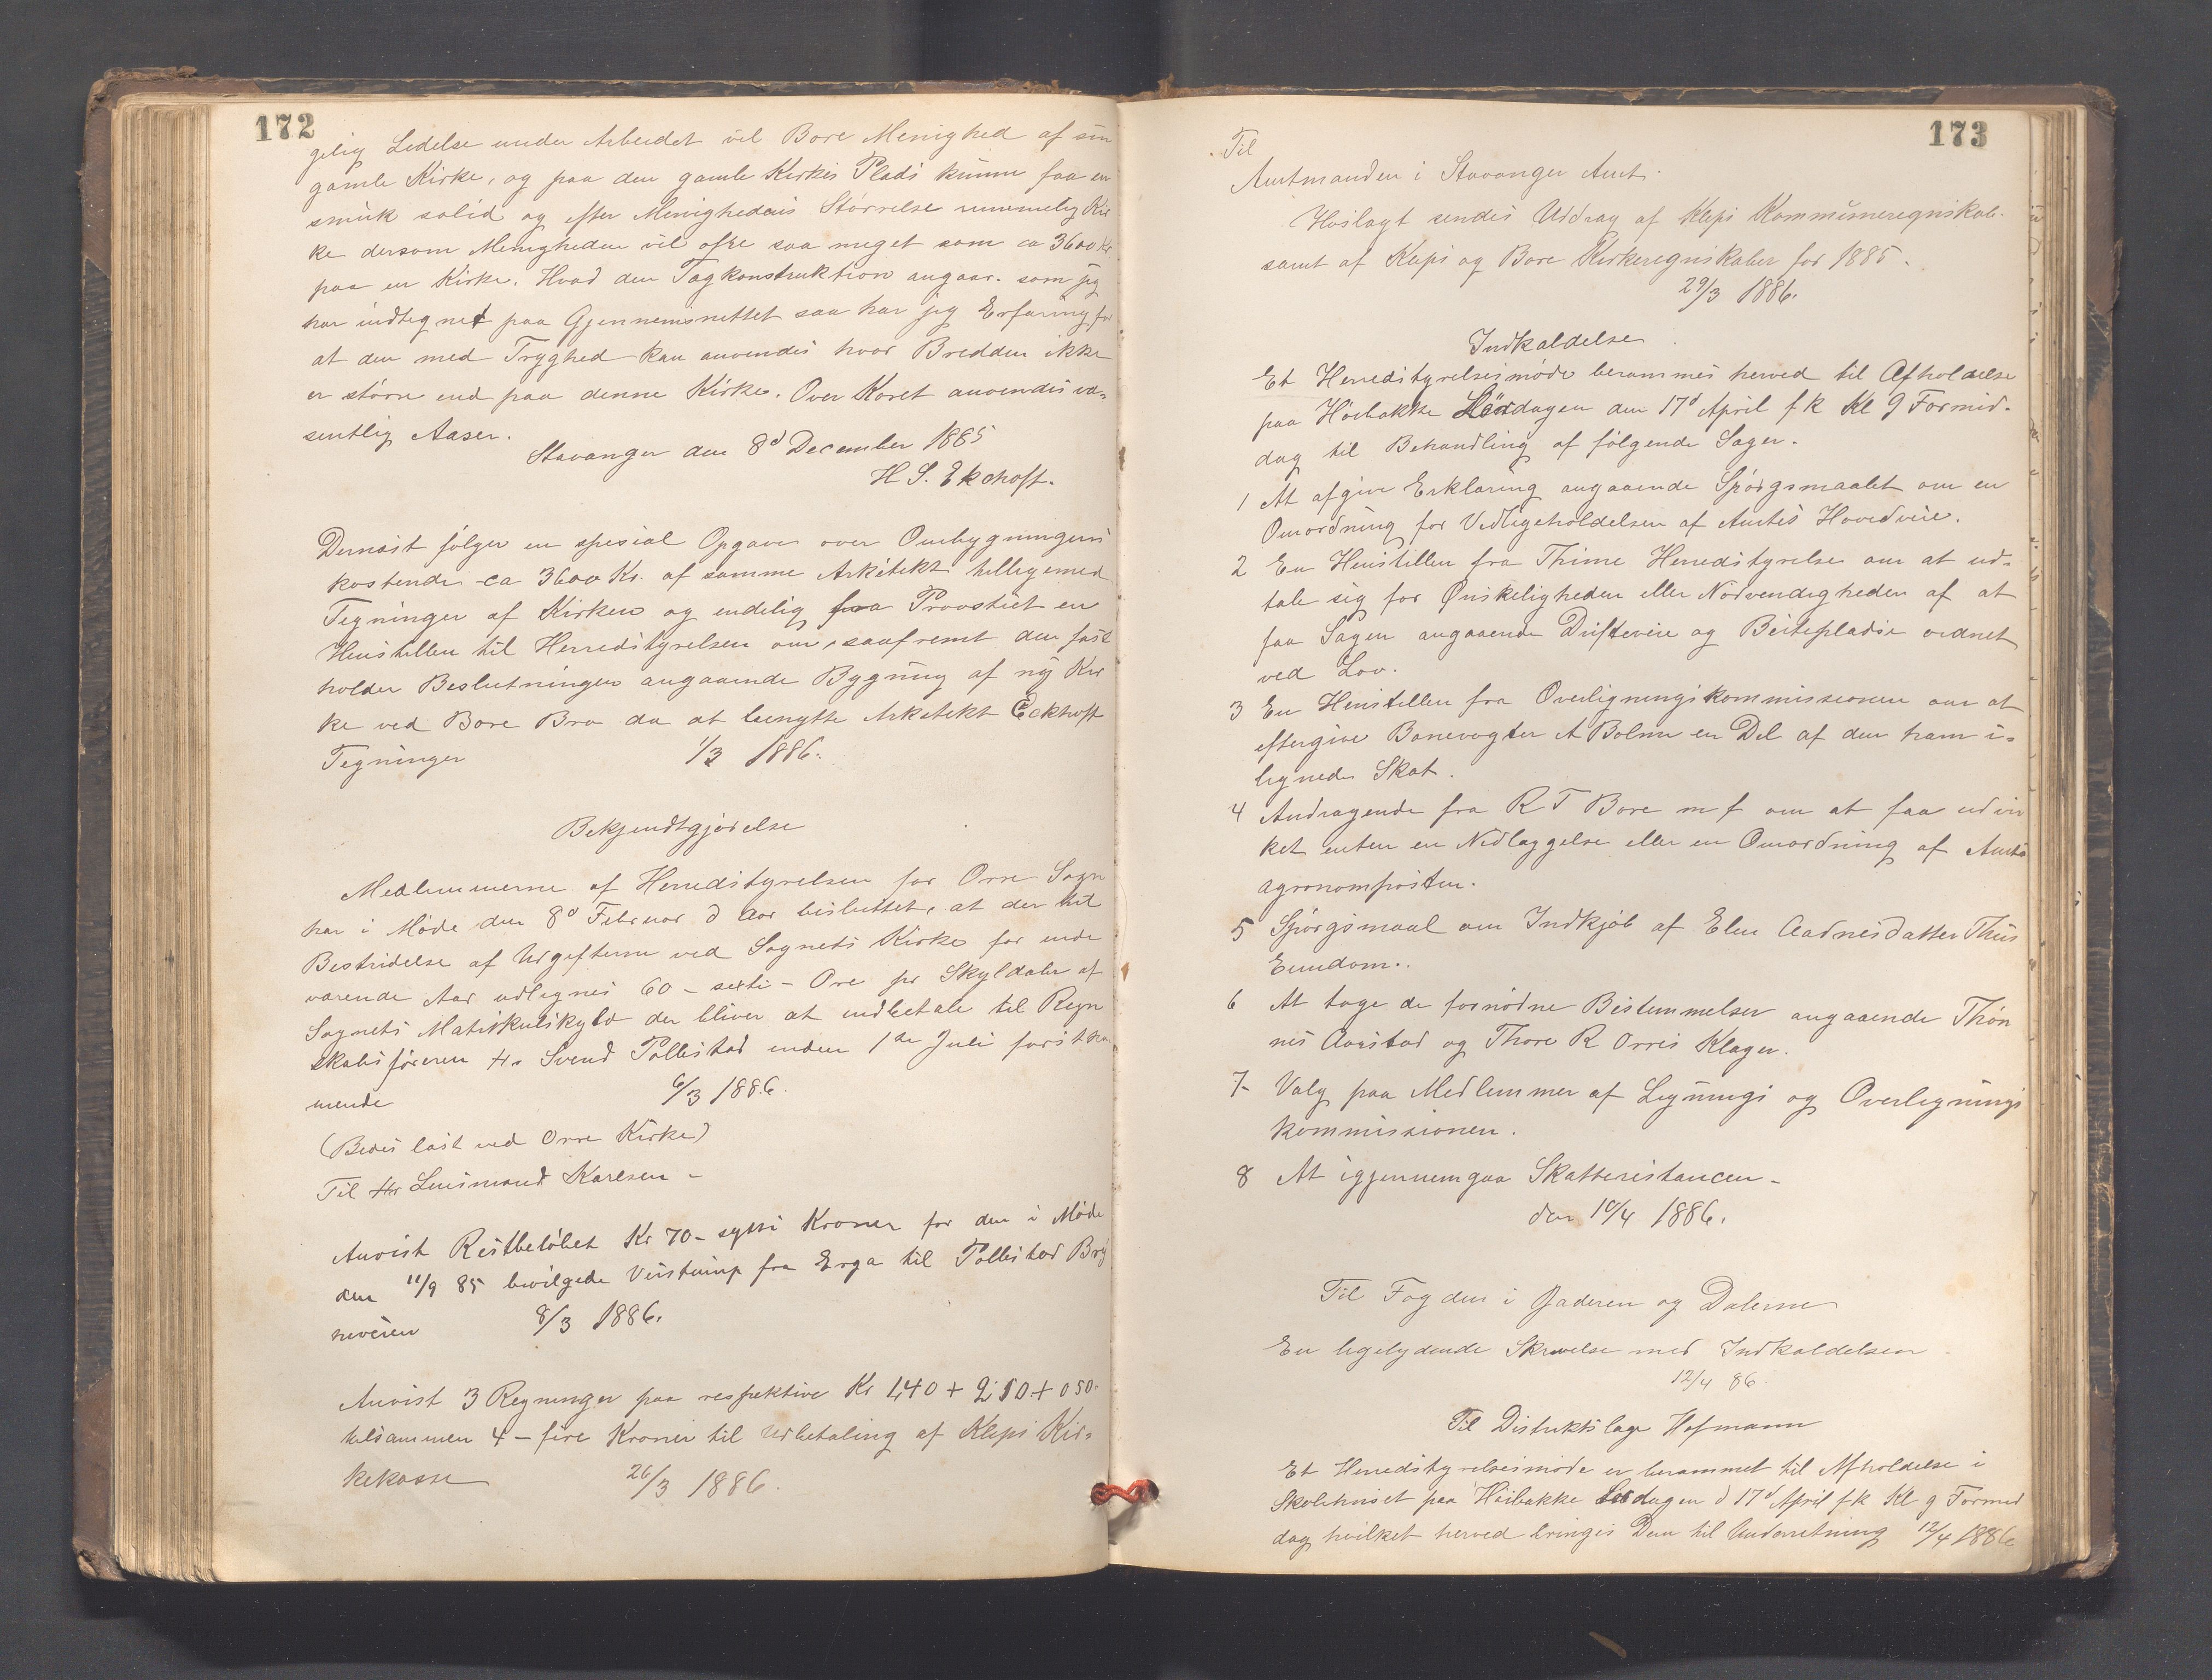 172
gelig Ledelse under Arbeidet vil Bore Menighed af sin
gamle Kirke, og paa den gamle Kirkes Plads kunne faa en
smuk solid og efter Menighedens Størrelse rummelig Kir
ke dersom Menigheden vil ofre saa meget som ca 3600 Kr
paa en Kirke. Hvad den Tagkonstruktion angaar. som jeg
har indtegnet paa Gjennemsnittet saa har jeg Erfaring for
at den med Tryghed kan anvendes hvor Bredden ikke
er større end paa denne Kirke. Over Koret anvendes væ-
sentlig Aaser.
Stavanger den 8d December 1885
H S. Ekchoff.
Dernæst følger en spesial Opgave over Ombygningens
kostende ca 3600 Kr. af samme Arkitekt tilligemed
Tegninger af Kirken og endelig fra Provstiet en
Henstillen til Herredstyrelsen om, saafremt den fast
holder Beslutningen angaaende Bygning af ny Kir
ke ved Bore Bro da at benytte Arkitekt Eckhoff
Tegninger 1/3 1886.
Bekjendtgjørelse
Medlemmerne af Herredstyrelsen for Orre Sogn
har i Møde den 8d Februar d Aar besluttet, at der til
Bestridelse af Udgifterne ved Sognets Kirke for inde
værende Aar udlignes 60 - sexti - Øre pr Skyldaler af
Sognets Matrikulskyld der bliver at indbetale til Regn
skabsføreren Hr Svend Pollestad inden 1ste Juli førstkom
mende 6/3 1886.
(Bedes læst ved Orre Kirke)
Til Hr Lensmand Karlsen -
Anvist Restbeløbet Kr 70 - sytti Kroner for den i Møde
den 11/9 85 bevilgede Veistump fra Erga til Pollestad Bry
neveien 8/3 1886.
Anvist 3 Regninger paa respektive Kr 1,40 + 2 10 + 0 50.
tilsammen 4 - fire Kroner til Udbetaling af Kleps Kir-
kekasse 26/3 1886.
173
Til
Amtmanden i Stavanger Amt.
Hoslagt sendes Uddrag af Kleps Kommuneregnskab.
samt af Kleps og Bore Kirkeregnskaber for 1885.
29/3 1886.
Indkaldelse
Et Herredstyrelsesmøde berammes herved til Afholdelse
paa Høibakke Lørdagen den 17d April f k Kl 9 Formid-
dag til Behandling af følgende Sager.
1 At afgive Erklæring angaaende Spørgsmaalet om en
Omordning for Vedligeholdelsen af Amtets Hovedveie.
2 En Henstillen fra Thime Herredstyrelse om at ud-
tale sig for Ønskeligheden eller Nødvendigheden af at
faa Sagen angaaende Drifteveie og Beitepladse ordnet
ved Lov.
3 En Henstillen fra Overligningskommissionen om at
eftergive Banevogter A Bolme en Del af den ham i-
lignede Skat.
4 Andragende fra R T Bore m f om at faa udvir
ket enten en Nedlæggelse eller en Omordning af Amts
agronomposten.
5 Spørgsmaal om Indkjøb af Elen Aadnesdatter Thus
Eiendom.
6 At tage de fornødne Bestemmelser angaaende Thøn
nes Aarstad og Thore R Orres Klager.
7- Valg paa Medlemmer af Lignings og Overlignings
kommissionen.
8 At igjennemgaa Skatterestancen -
den 10/4 1886.
Til Fogden i Jæderen og Dalerne
En ligelydende Skrivelse med Indkaldelsen
12/4 86.
Til Distriktslæge Hofmann
Et Herredstyrelsesmøde er berammet til Afholdelse i
Skolehuset paa Høibakke Lørdagen d 17d April f k Kl 9 Formid
dag hvilket herved bringes Dem til Underretning 12/4 1886